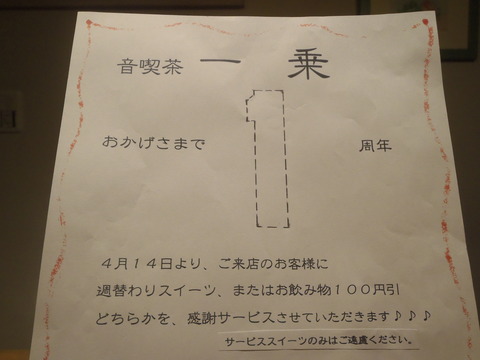 音喫茶 一 乗
おかげさまで 1 周年
４月１４日より、ご来店のお客様に
週替わりスイーツ、またはお飲み物１００円引
どちらかを、感謝サービスさせていただきます♪♪♪
サービススイーツのみはご遠慮ください。